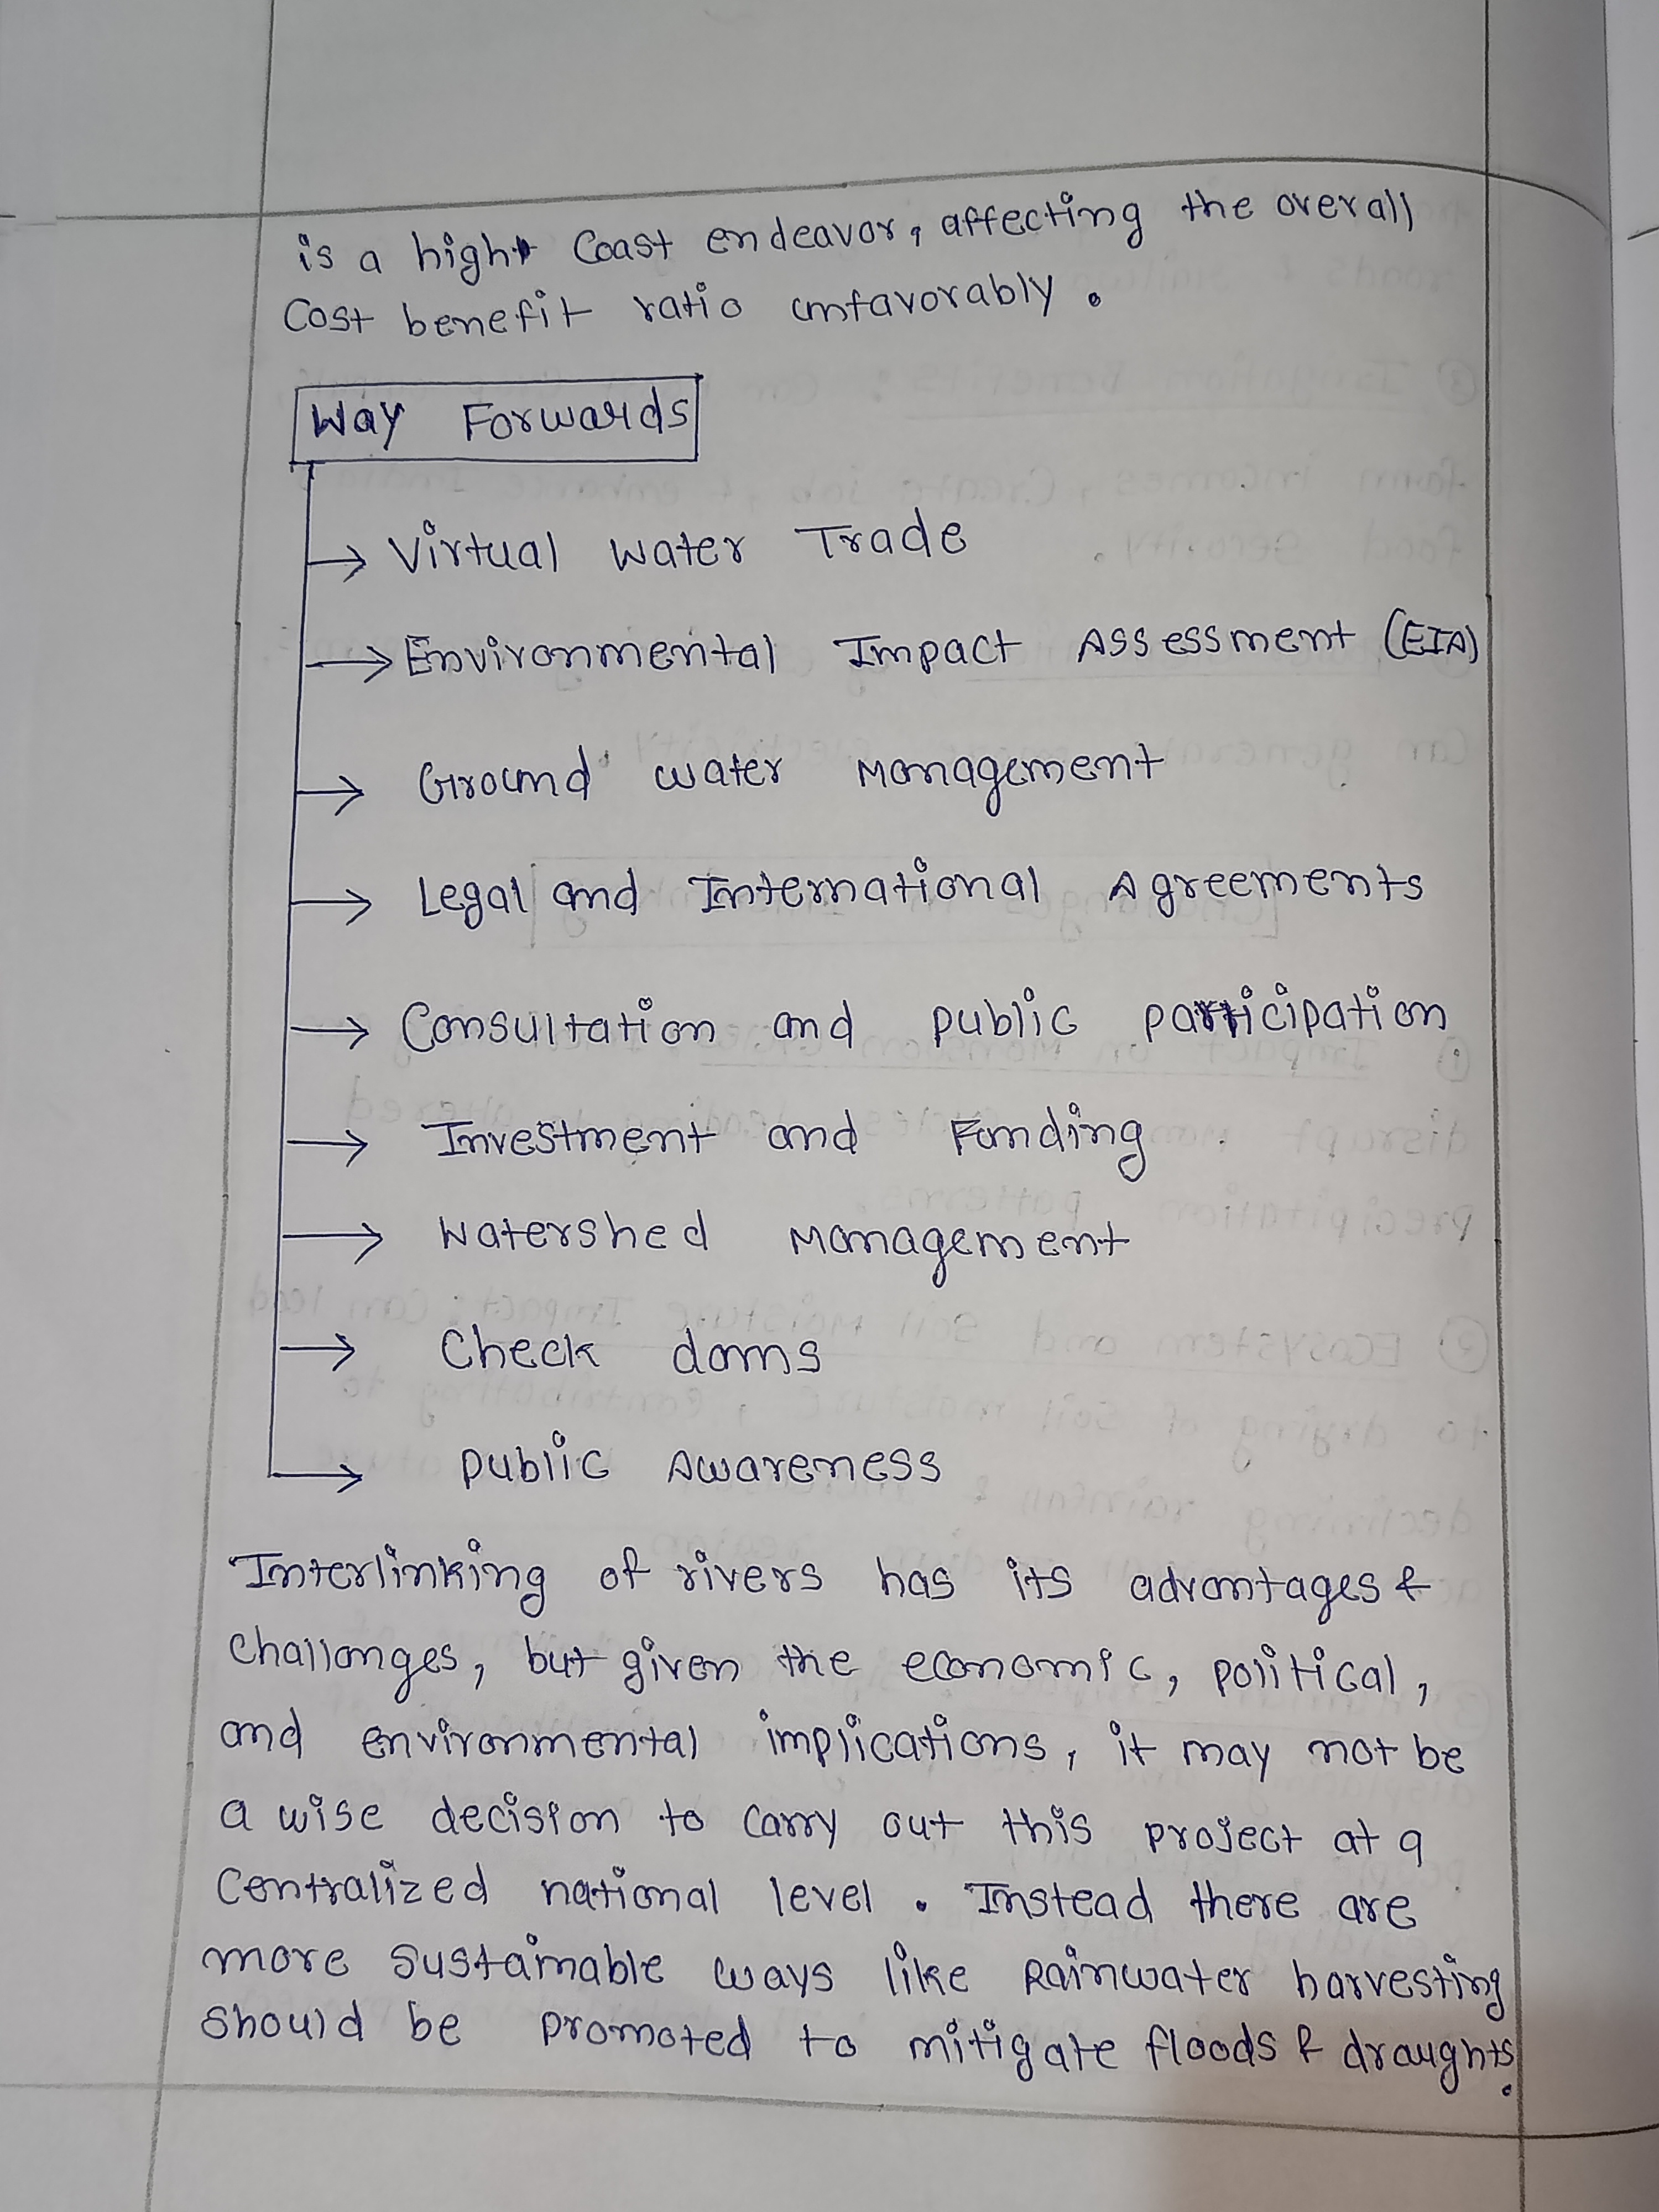 is a high Coast endeavor, affecting the overall
Cost benefit ratio unfavorably.
Way Forwards
→ Virtual Water Trade
→ Environmental Impact Assessment (EIA)
→ Ground water Management
→ Legal and International Agreements
→ Consultation and public participation
→ Investment and Funding
→ Watershed Management
→ Check dams
→ Public Awareness
Interlinking of rivers has its advantages &
challanges, but given the economic, political,
and environmental implications, it may not be
a wise decision to carry out this project at a
Centralized national level. Instead there are
more sustainable ways like Rainwater harvesting
should be promoted to mitigate floods & draughts.